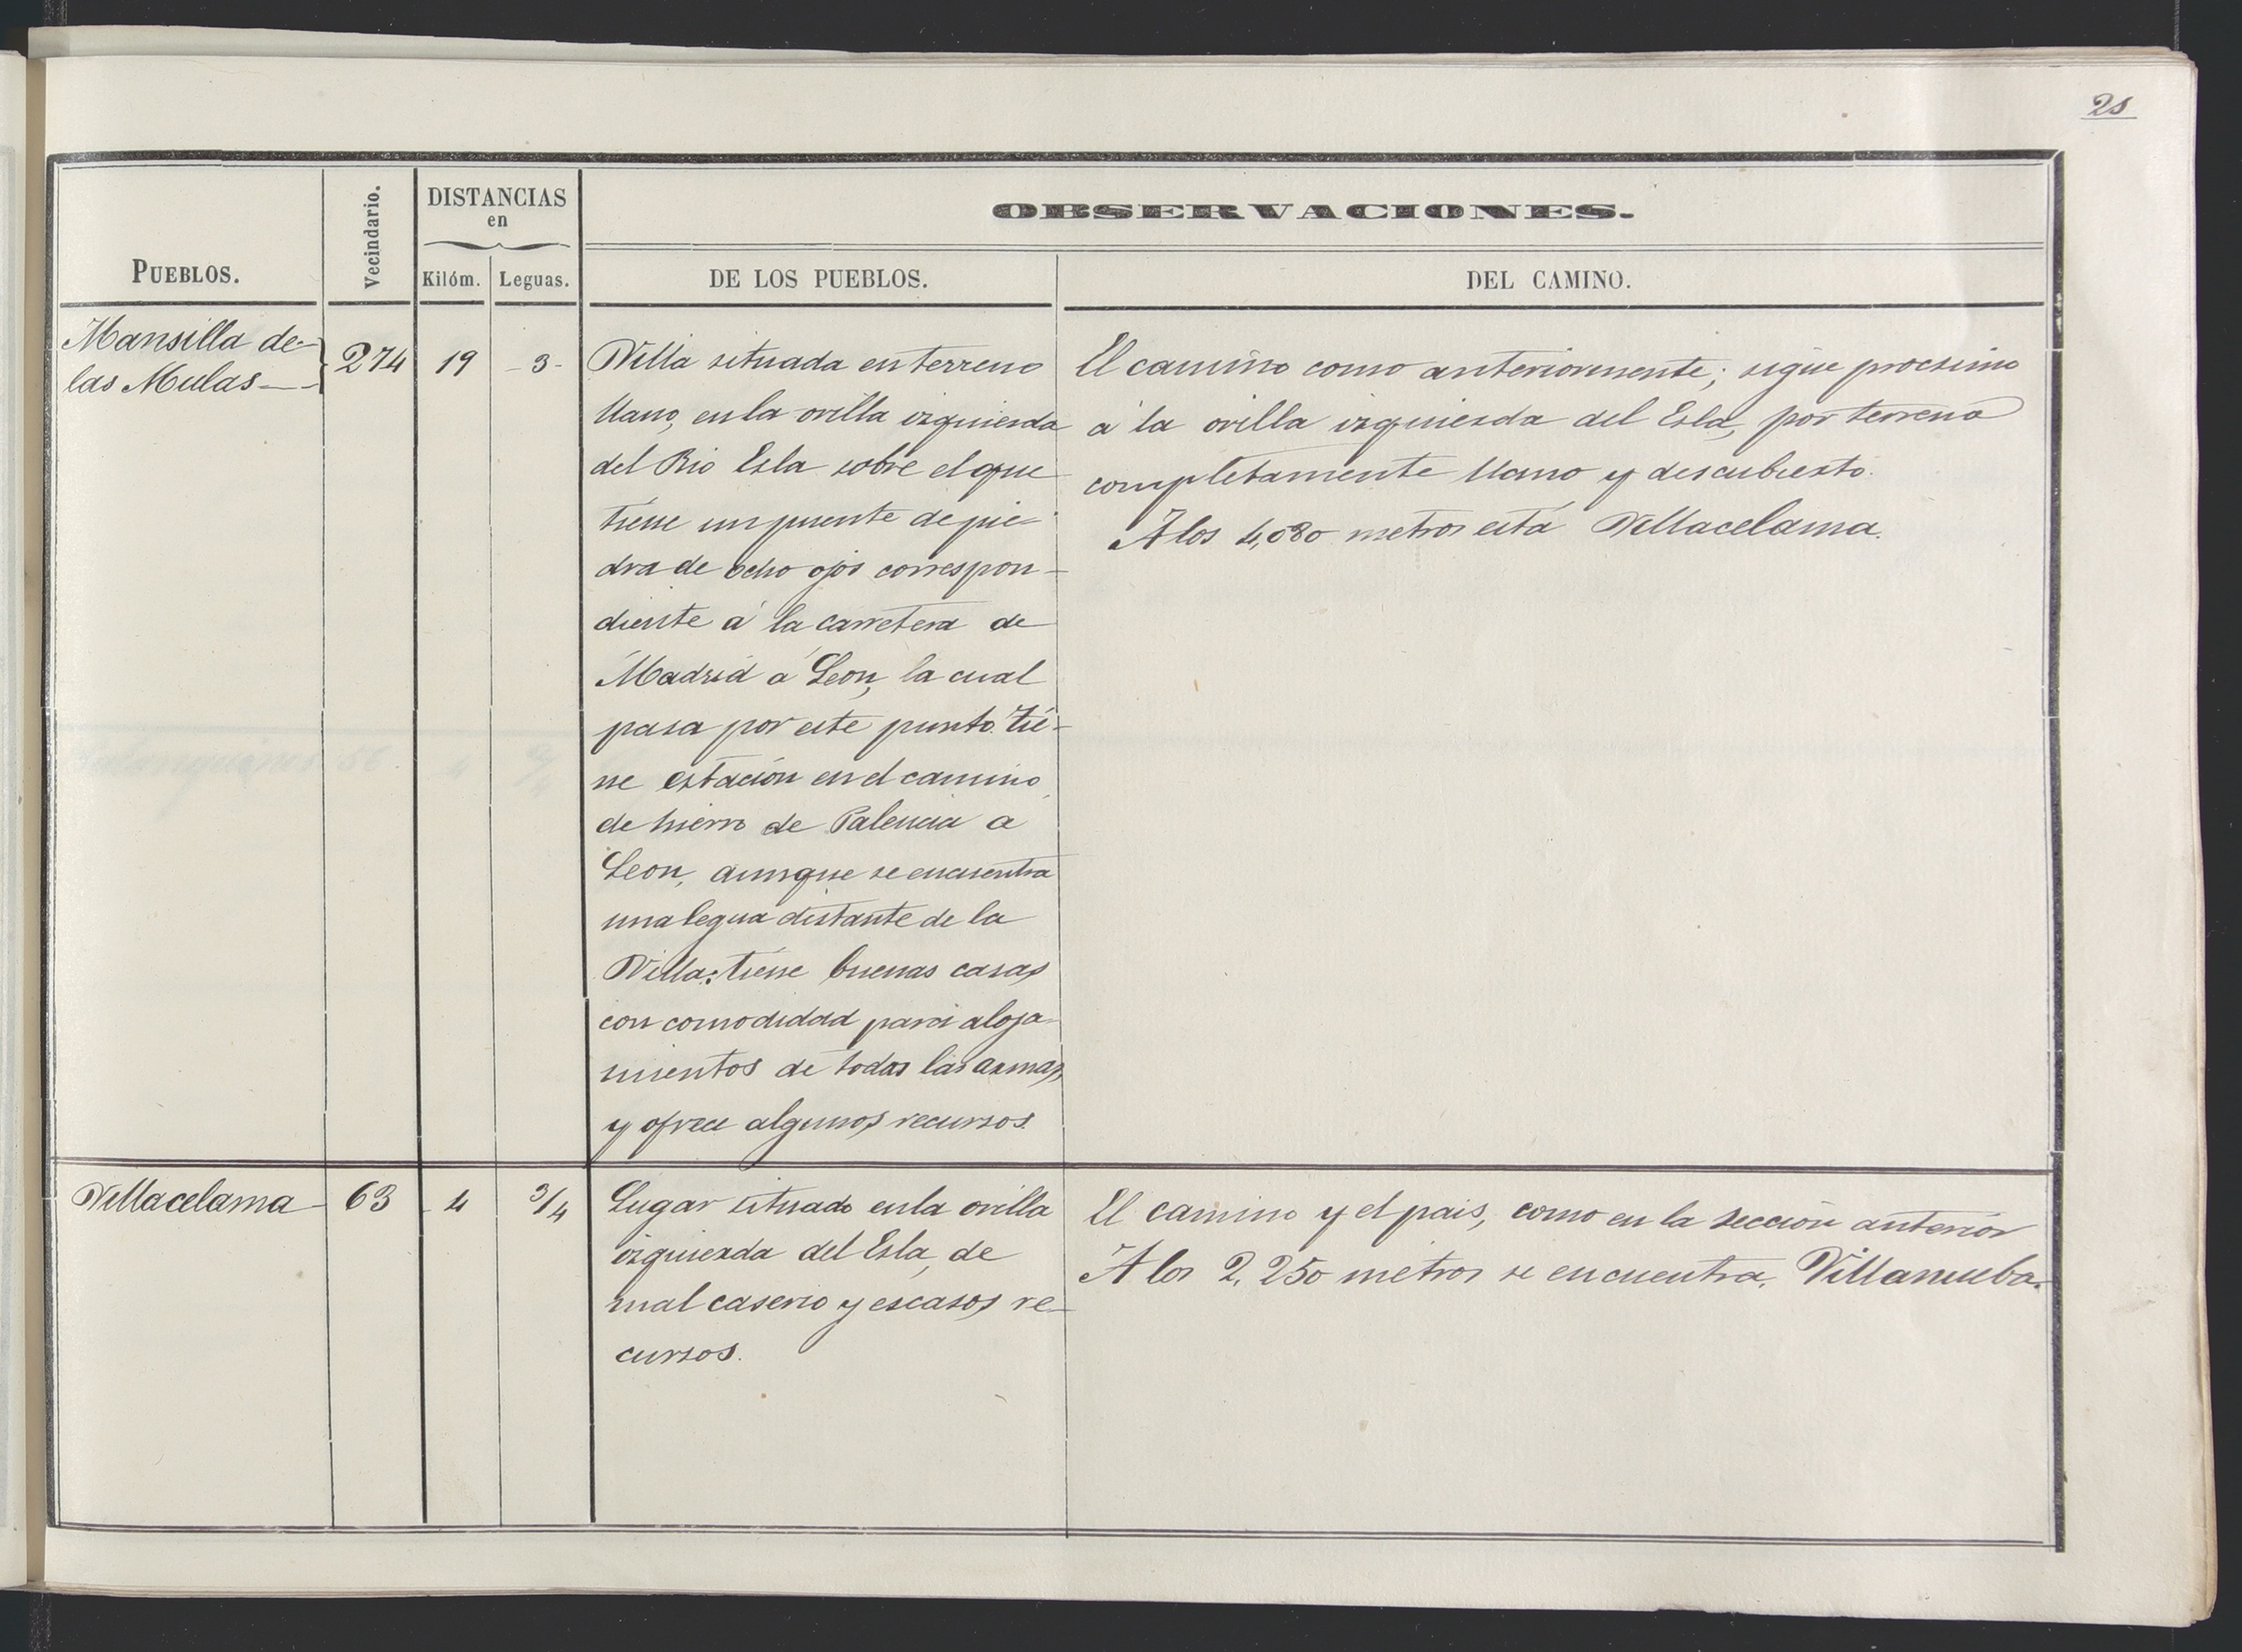 25
PUEBLOS.
Vecindario.
DISTANCIAS
en
Kilóm.
Leguas.
OBSERVACIONES.
DE LOS PUEBLOS.
DEL CAMINO.
Mansilla de
las Mulas
274
19
3
Villa situada en terreno
llano, en la orilla izquierda
del Rio Esla sobre el que
tiene un puente de pie-
dra de ocho ojos correspon-
diente á la carretera de
Madrid á Leon, la cual
pasa por este punto. Tie-
ne estación en el camino
de hierro de Palencia a
Leon, aunque se encuentra
una legua distante de la
Villa: tiene buenas casas
con comodidad para aloja-
mientos de todas las armas,
y ofrece algunos recursos.
El camino como anteriormente; sigue procsimo
á la orilla izquierda del Esla, por terreno
completamente llano y descubierto.
A los 4,080 metros está Villacelama.
Villacelama
63
4
3/4
Lugar situado en la orilla
izquierda del Esla, de
mal caserio y escasos re-
cursos.
El camino y el pais, como en la sección anterior
A los 2,250 metros se encuentra Villanueba.